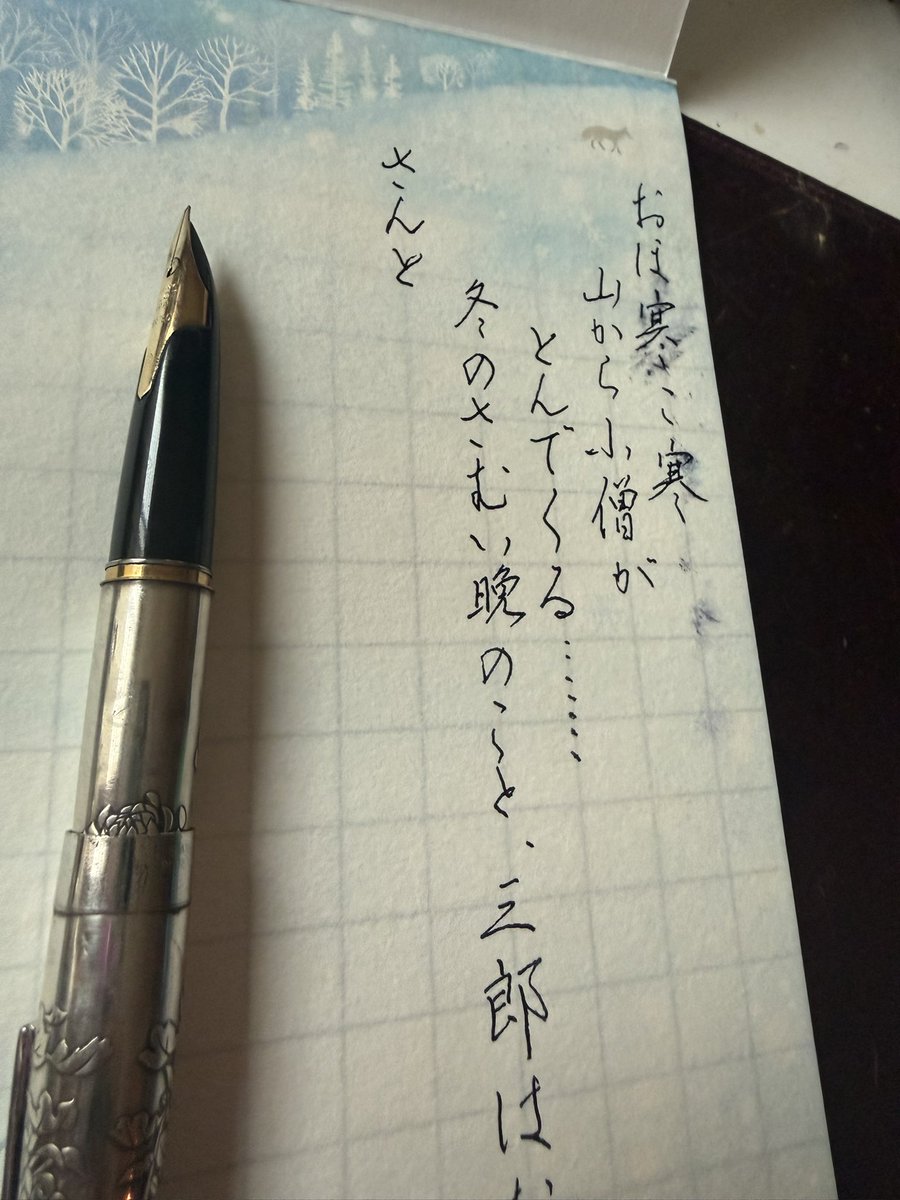 おほ寒こ寒
山から小僧が
とんでくる……
冬のさむい晩のこと、三郎は
さんと